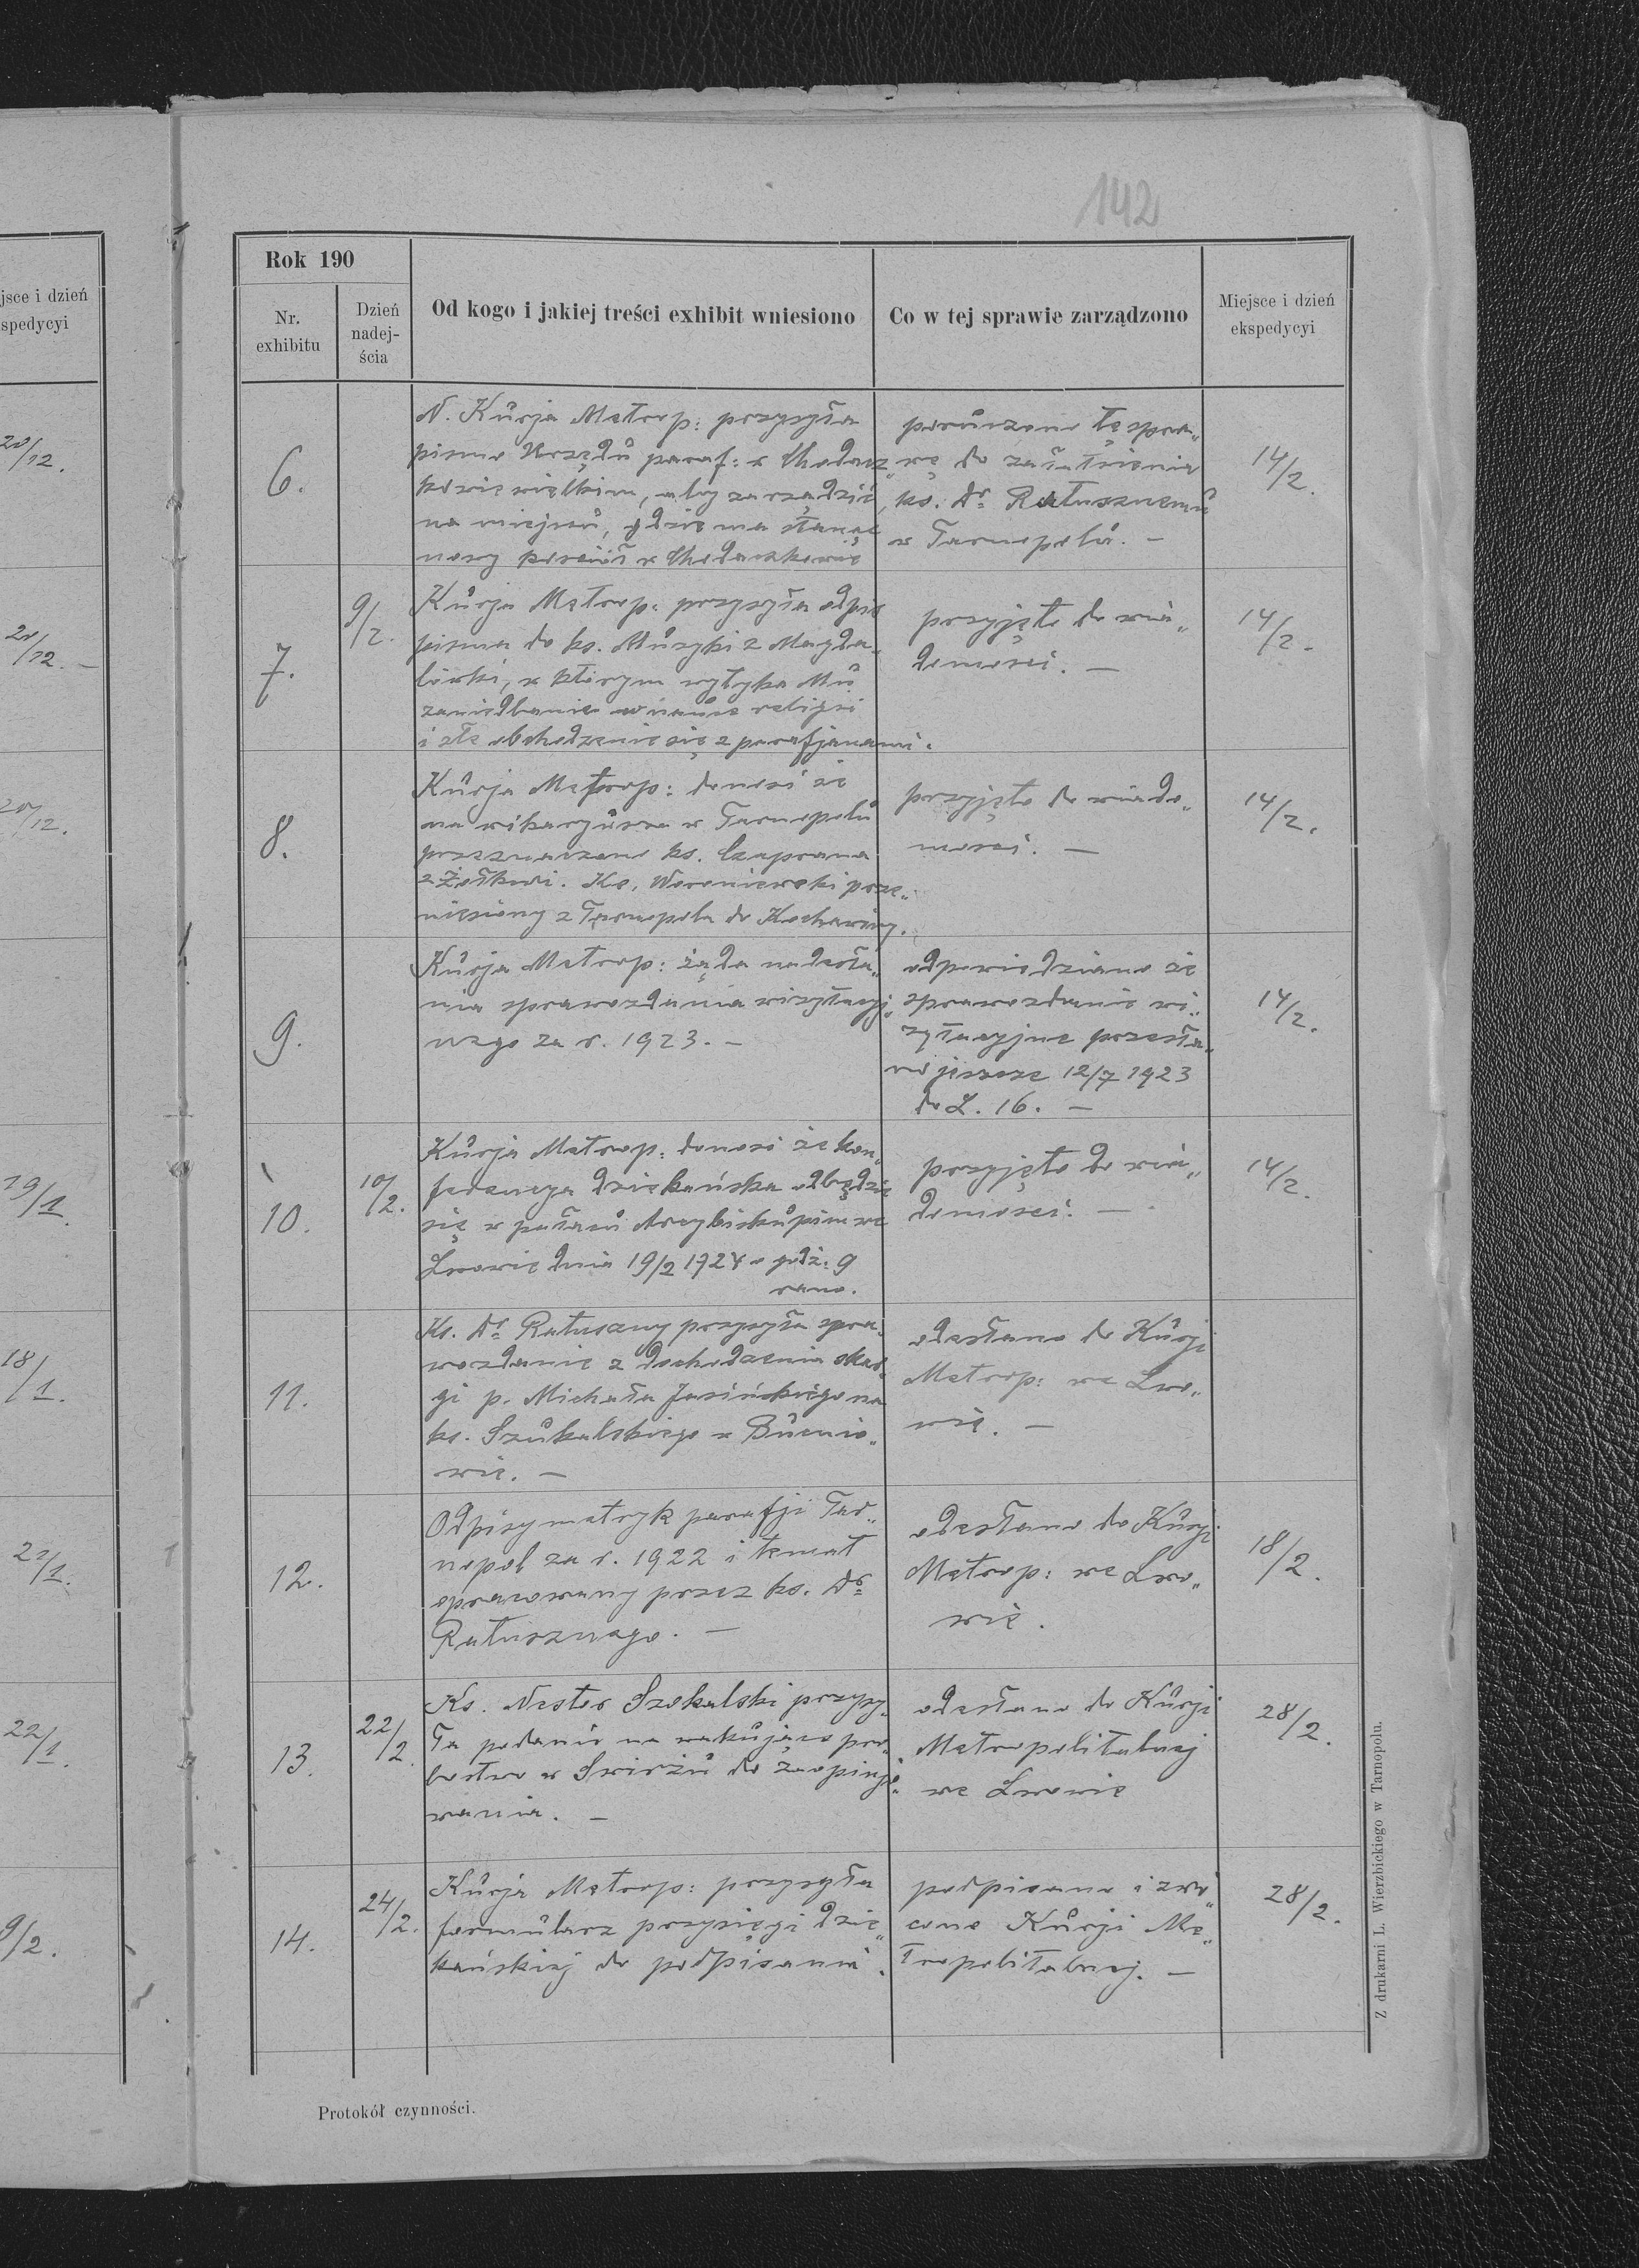 142
jsce i dzień
spedycyi
20/12.
20/12. —
20/12.
19/1.
18/1.
22/1.
22/1.
9/2.
Rok 190
Nr.
exhibitu
Dzień
nadej-
ścia
Od kogo i jakiej treści exhibit wniesiono
Co w tej sprawie zarządzono
Miejsce i dzień
ekspedycyi
6.
N. Kurja Metrop: przysyła
pismo Urzędu paraf: w Chodacz„
kowie wielkim, aby zarządzić
na miejscu, gdzie ma stanąć
nowy kościół w Chodaczkowie
poruczono tę spra„
wę do załatwienia
ks. Dr Ratusznemu
w Tarnopolu. —
14/2.
7.
9/2.
Kurja Metrop: przysyła odpis
pisma do ks. Muzyki z Magda„
lówki, w którym wytyka Mu
zaniedbanie w nauce religji
i złe obchodzenie się z parafjanami.
przyjęto do wia„
domości. —
14/2.
8.
Kurja Metrop: donosi że
na wikaryusza w Tarnopolu
przeznaczono ks. Czaprana
z Żółkwi. Ks. Woroniewski prze„
niesiony z Tarnopola do Kochawiny.
przyjęto do wiado„
mości. —
14/2.
9.
Kurja Metrop: żąda nadesła„
nia sprawozdania wizytacyj„
nego za r. 1923. —
odpowiedziano że
sprawozdanie wi„
zytacyjne przesła„
no jeszcze 12/7 1923
do L. 16. —
14/2.
10.
10/2.
Kurja Metrop: donosi że kon„
ferencya dziekańska odbędzie
się w pałacu Arcybiskupim we
Lwowie dnia 19/2 1924 o godz: 9
rano.
przyjęto do wia„
domości. —
14/2.
11.
Ks. Dr Ratuszny przysyła spra„
wozdanie z dochodzenia skar„
gi p. Michała Jasińskiego na
ks. Szukalskiego w Bucnio„
wie. —
odesłano do Kurji
Metrop: we Lwo„
wie. —
12.
Odpisy metryk parafji Tar„
nopol za r. 1922 i temat
opracowany przez ks. Dr
Ratusznego. —
odesłano do Kurji
Metrop: we Lwo„
wie.
18/2.
13.
22/2.
Ks. Nestor Szokalski przysy„
ła podanie na wakujące pro„
bostwo w Świrżu do zaopinjo„
wania. —
odesłano do Kurji
Metropolitalnej
we Lwowie
28/2.
14.
24/2.
Kurja Metrop: przysyła
formularz przysięgi dzie„
kańskiej do podpisania.
podpisano i zwró„
cono Kurji Me„
tropolitalnej. —
28/2.
Protokół czynności.
Z drukarni L. Wierzbickiego w Tarnopolu.